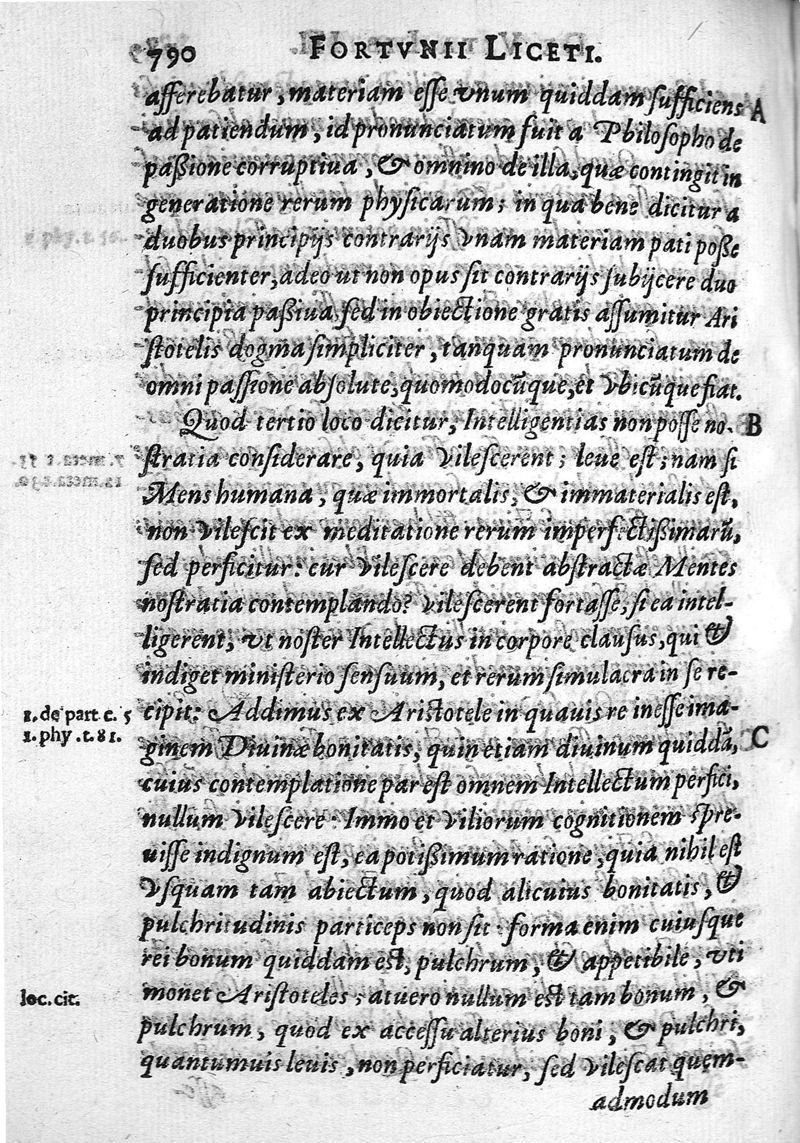 790 FORTVNII LICETI.
afferebatur, materiam esse vnum quiddam sufficiens A
ad patiendum, id pronunciatum fuit a Philosopho de
paßione corruptiua, & omnino de illa, quæ contingit in
generatione rerum physicarum; in qua bene dicitur a
duobus principijs contrarijs vnam materiam pati poße
sufficienter, adeo ut non opus sit contrarijs subijcere duo
principia paßiua, sed in obiectione gratis assumitur Ari
stotelis dogma simpliciter, tanquam pronunciatum de
omni passione absolute, quomodocũque, et vbicũque fiat.
Quod tertio loco dicitur, Intelligentias non posse no- B
stratia considerare, quia vilescerent; leue est; nam si
Mens humana, quæ immortalis, & immaterialis est,
non vilescit ex meditatione rerum imperfectißimarũ,
sed perficitur: cur vilescere debent abstractæ Mentes
nostratia contemplando? vilescerent fortasse, si ea intel-
ligerent, vt noster Intellectus in corpore clausus, qui &
indiget ministerio sensuum, et rerum simulacra in se re-
1. de part c. 5 cipit: Addimus ex Aristotele in quauis re inesse ima-
1. phy. t. 81. ginem Diuinæ bonitatis, quin etiam diuinum quiddã, C
cuius contemplatione par est omnem Intellectum perfici,
nullum vilescere: Immo et viliorum cognitionem spre-
uisse indignum est, ea potißimum ratione, quia nihil est
vsquam tam abiectum, quod alicuius bonitatis, &
pulchritudinis particeps non sit: forma enim cuiusque
rei bonum quiddam est, pulchrum, & appetibile, vti
loc. cit. monet Aristoteles; at uero nullum est tam bonum, &
pulchrum, quod ex accessu alterius boni, & pulchri,
quantumuis leuis, non perficiatur, sed vilescat quem-
admodum